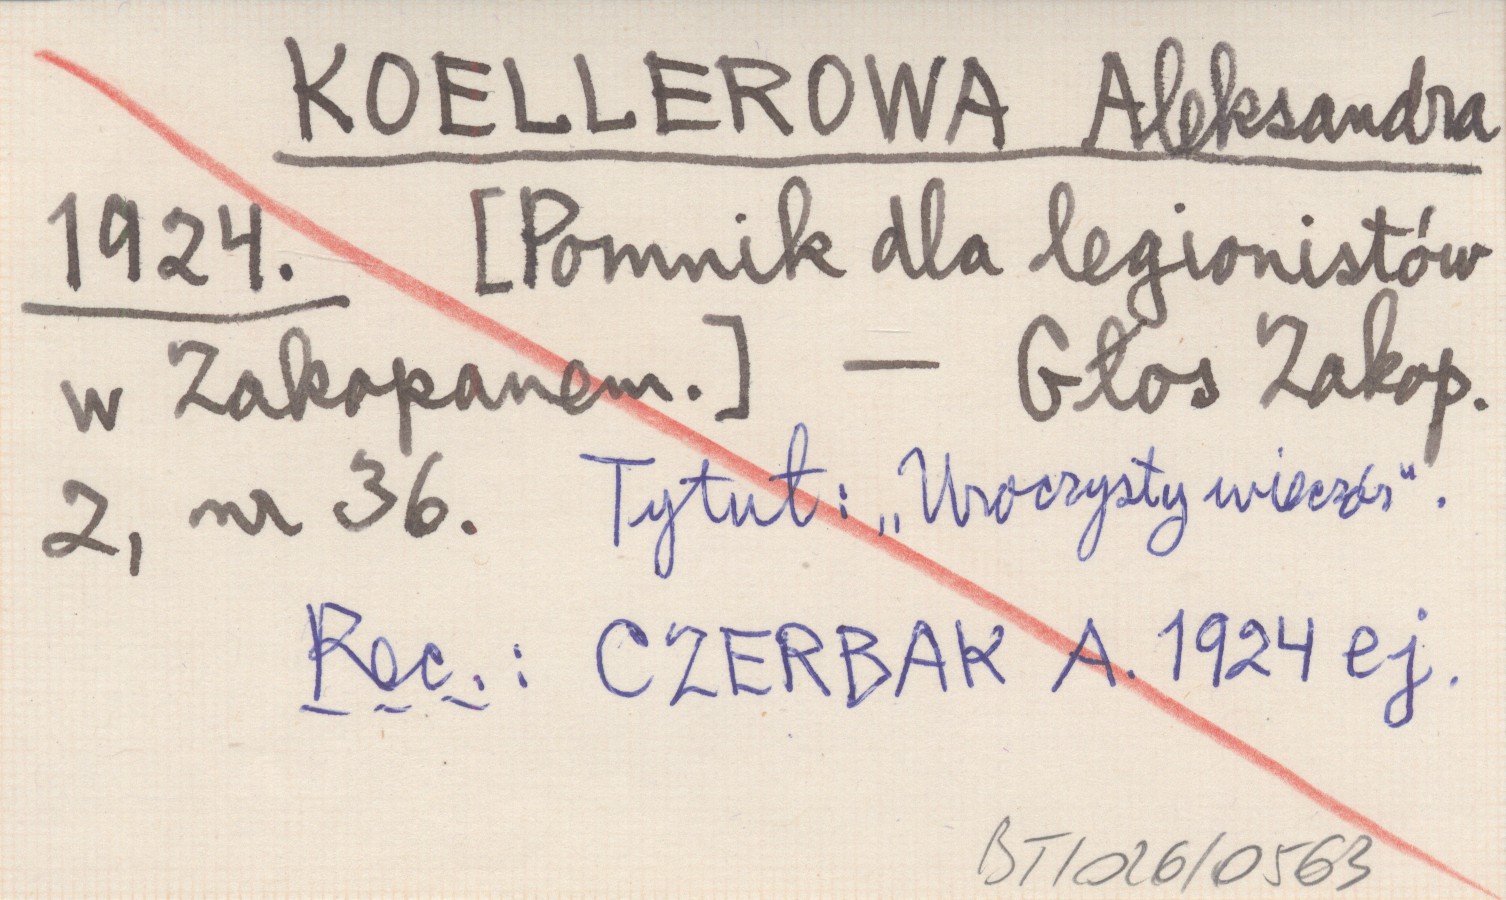 KOELLEROWA Aleksandra
1924. [Pomnik dla legionistów
w Zakopanem.] — Głos Zakop.
2, nr 36. Tytuł: „Uroczysty wieczór".
Rec.: CZERBAK A. 1924 ej.
BT/026/0563